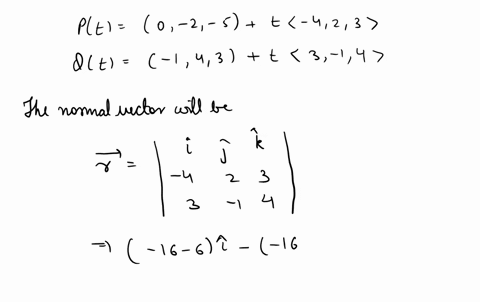 P(t) = (0, -2, -5) + t < -4, 2, 3 >
Q(t) = (-1, 4, 3) + t < 3, -1, 4 >
The normal vector will be
r⃗ = | i ĵ k̂ |
| -4 2 3 |
| 3 -1 4 |
⇒ (-16-6) î - (-16